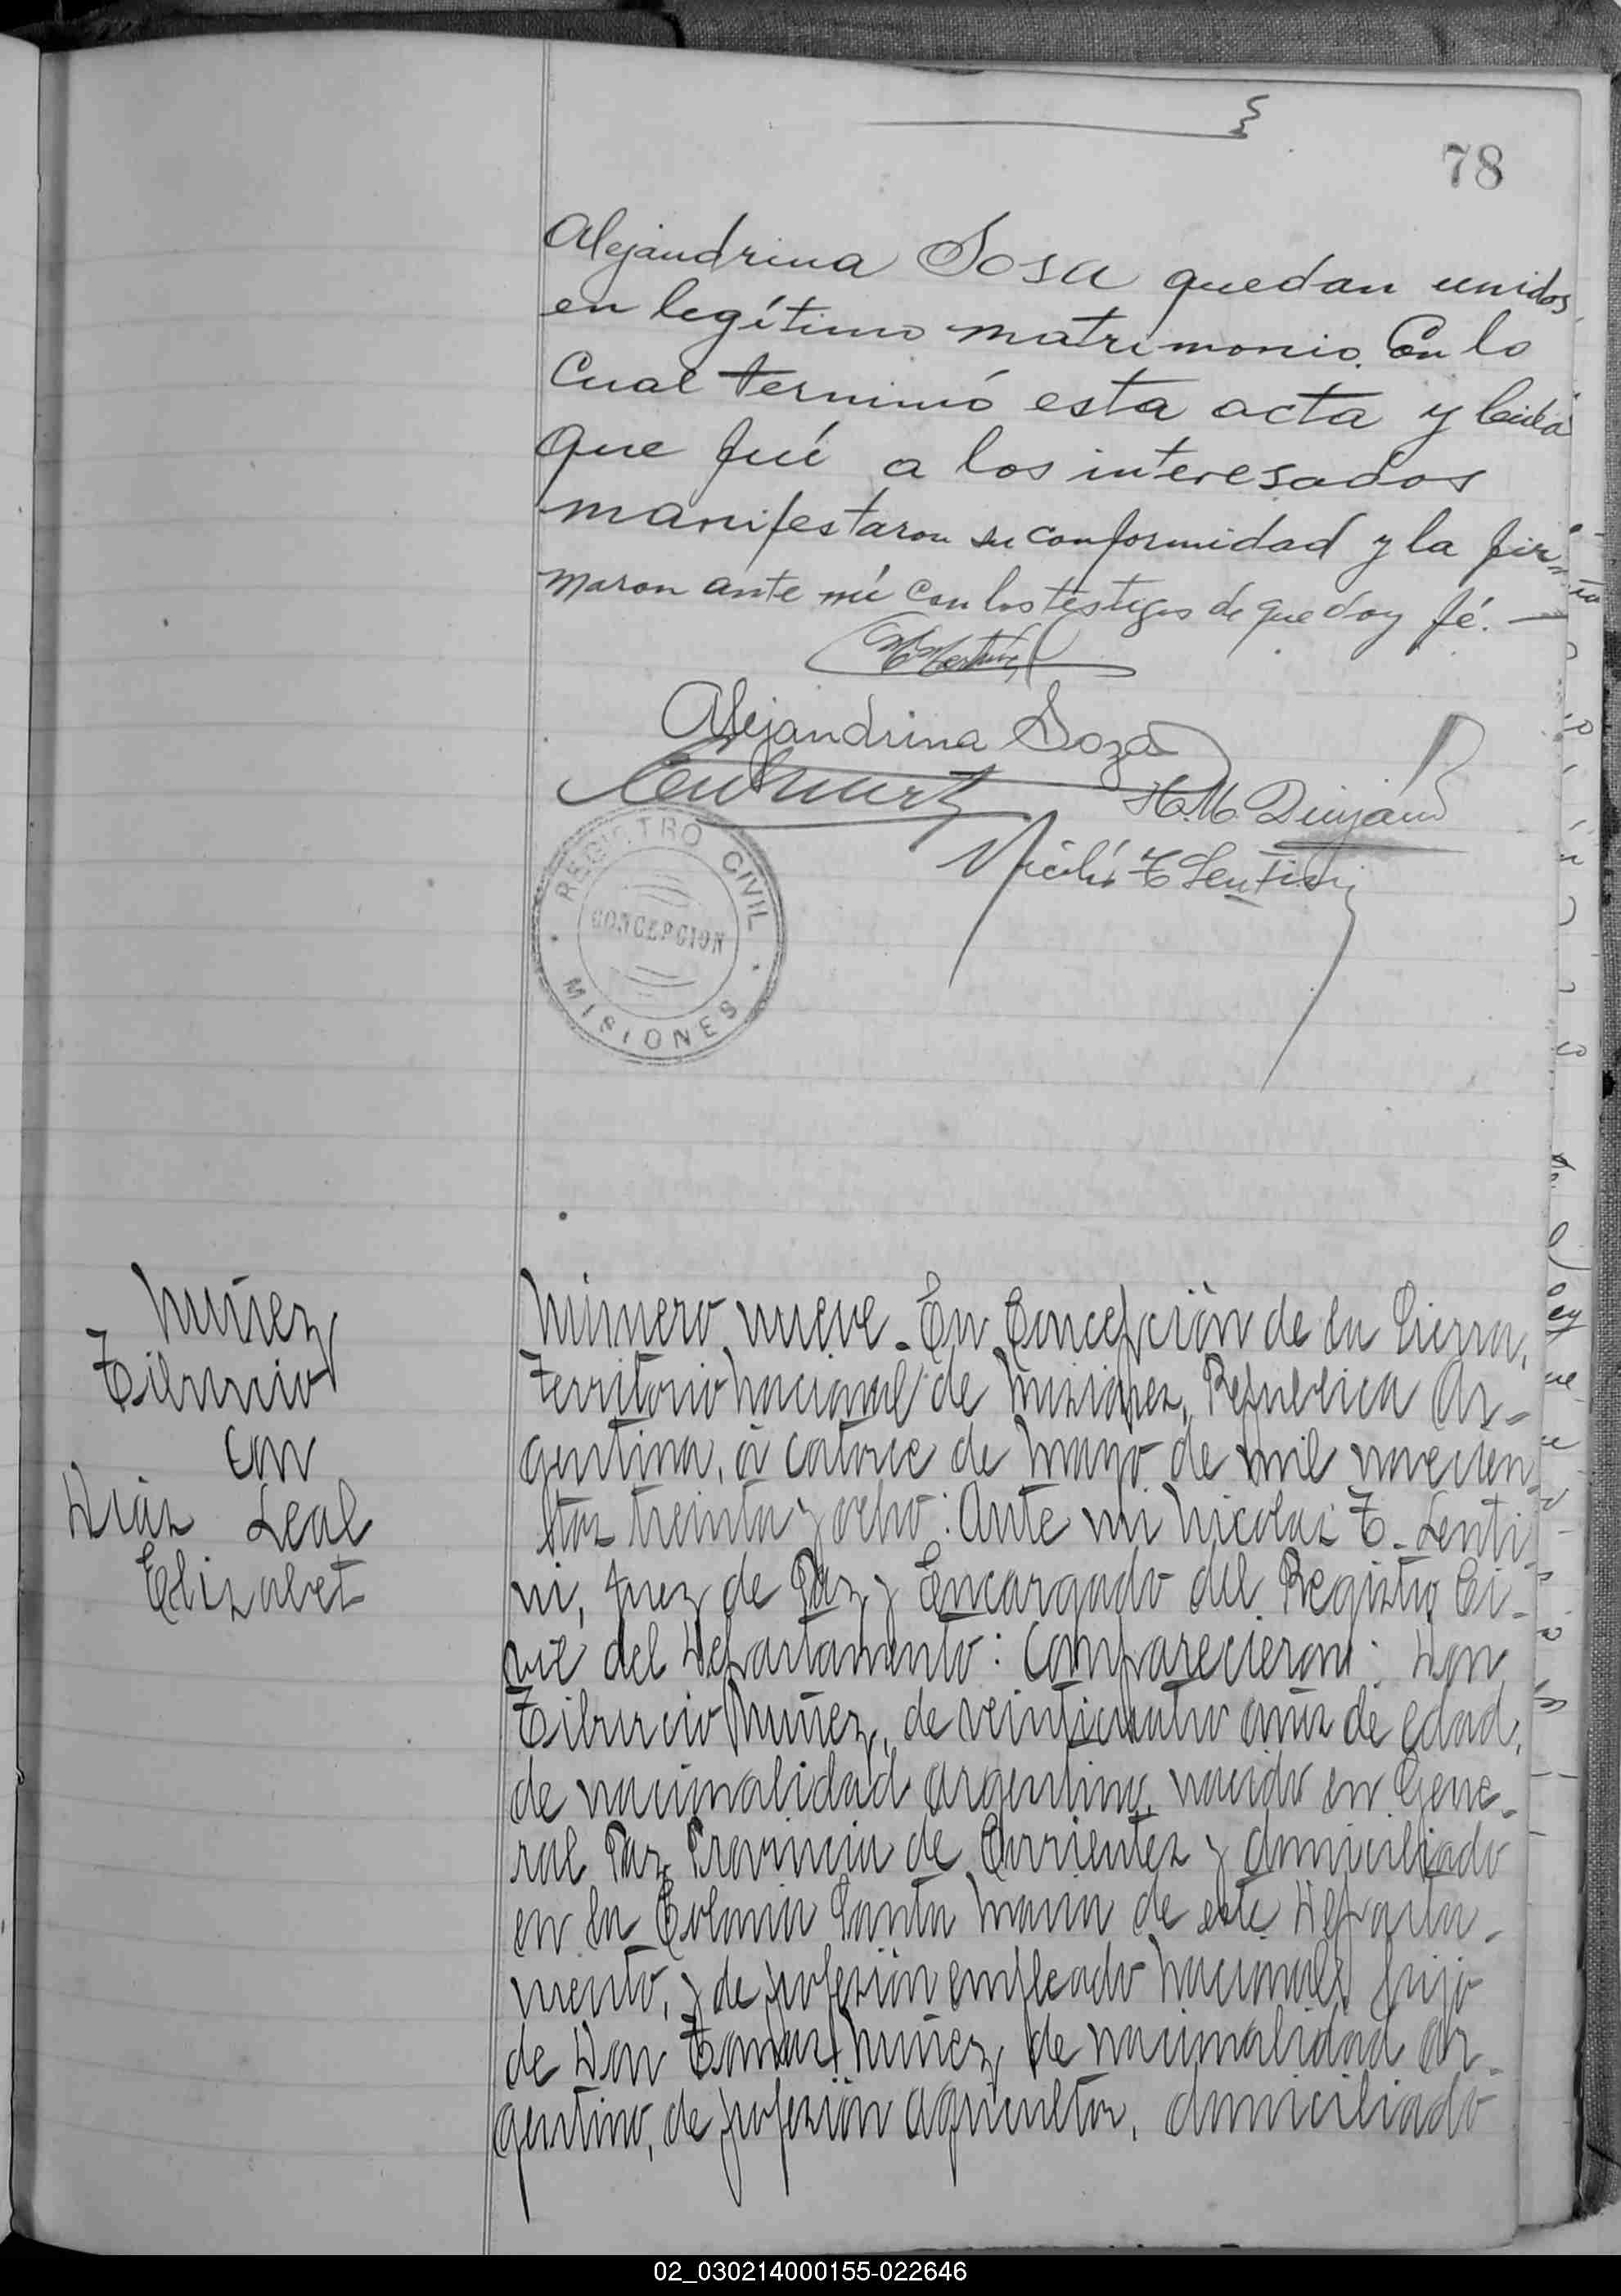 78
Alejandrina Sosa quedan unidos
en legítimo matrimonio. Con lo
cual terminó esta acta y leida
que fué a los interesados
manifestaron su conformidad y la fir-
maron ante mí con los testigos de que doy fé. —
Alejandrina Soza
H. M.
Nicolás T Lentini
REGISTRO CIVIL
CONCEPCION
MISIONES
Nuñez
Tiburcio
con
Diaz Leal
Elizabet
Número nueve. En Concepción de la Sierra,
Territorio Nacional de Misiones, República Ar-
gentina, á catorce de Mayo de mil novecien
tos treinta y ocho: Ante mi Nicolas T. Lenti
ni, Juez de Paz y Encargado del Registro Ci-
vil del Departamento: Comparecieron: Don
Tiburcio Nuñez, de veinticuatro años de edad,
de nacionalidad argentino, nacido en Gene-
ral Paz, Provincia de Corrientes y domiciliado
en la Colonia Santa Maria de este Departa-
mento, y de profesión empleado Nacional, hijo
de Don Tomas Nuñez, de nacionalidad ar-
gentino, de profesión agricultor, domiciliado
02_030214000155-022646